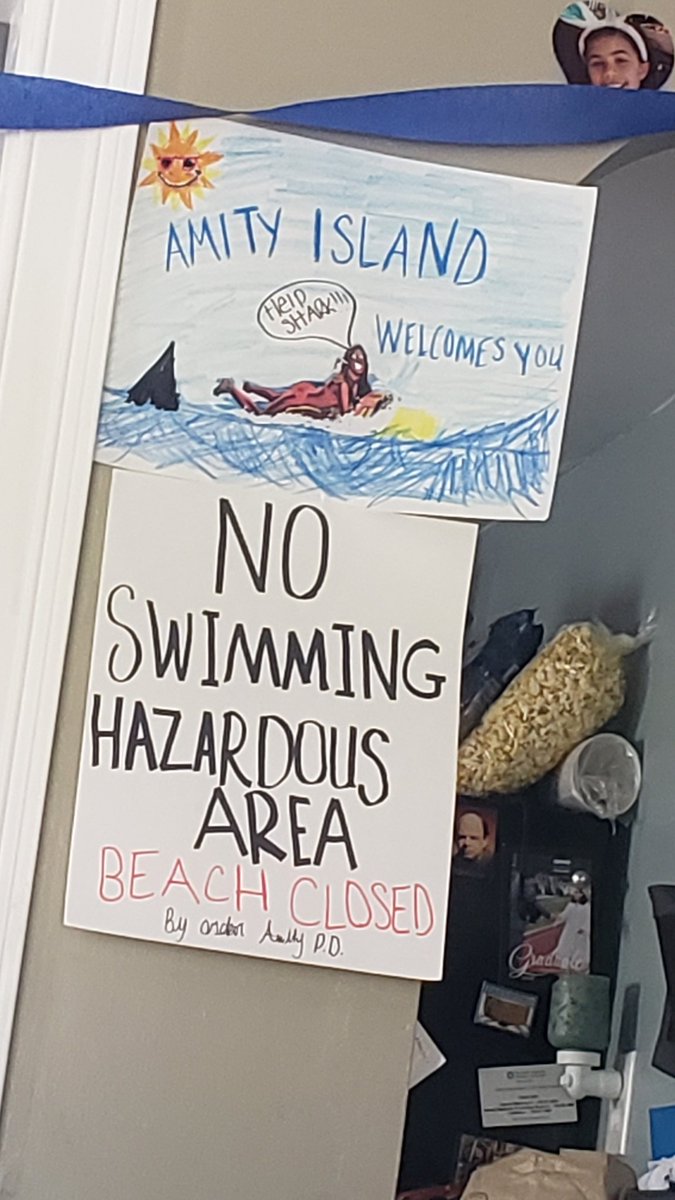 AMITY ISLAND
HELP
SHARK!!!
WELCOMES YOU
NO
SWIMMING
HAZARDOUS
AREA
BEACH CLOSED
By order Amity P.D.
Graduate